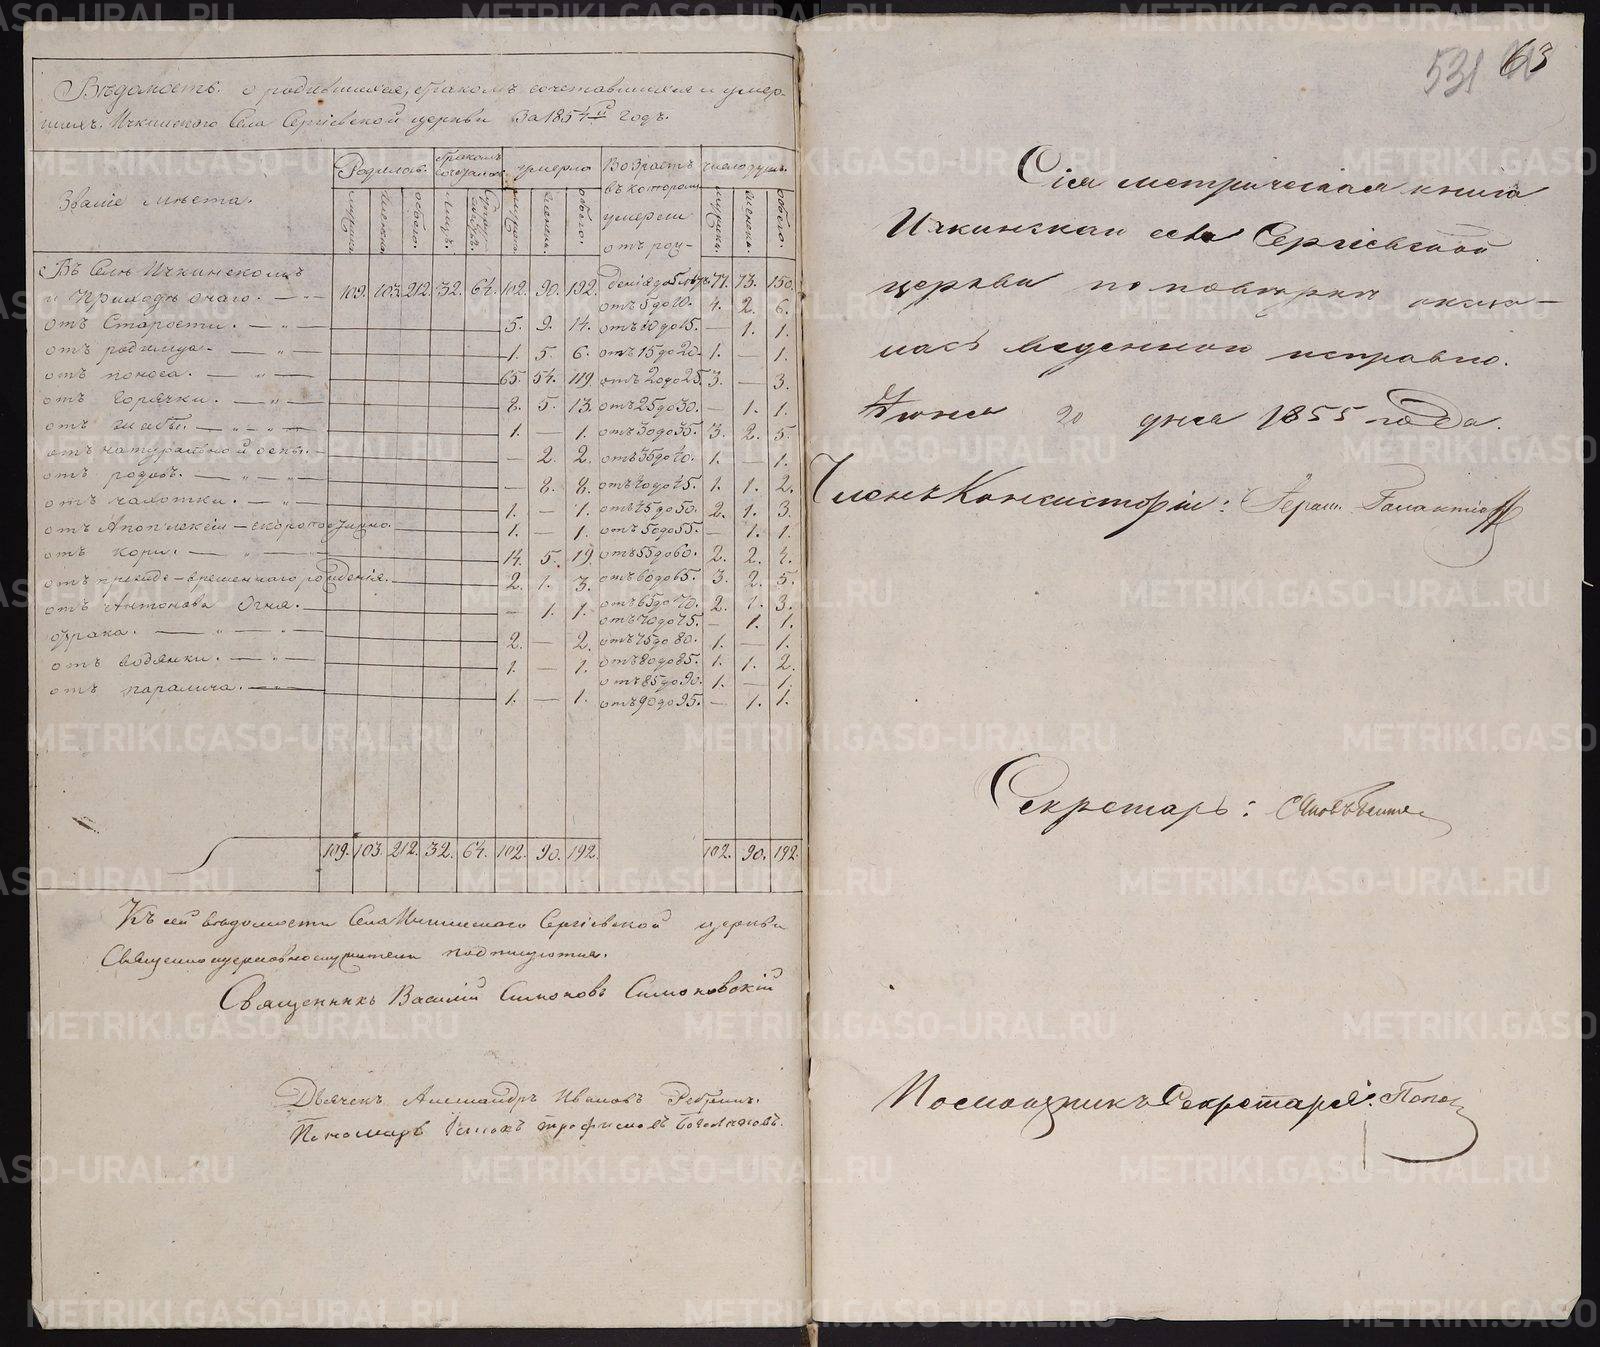 Вѣдомость о родившихся, бракомъ сочетавшихся и умер-
шихъ Ичкинскаго Села Сергіевской церкви за 1854й годъ.
Званіе мѣста.
Родилось.
бракомъ сочеталось
умерло
Возрастъ въ которомъ умерли отъ рож-
число душъ.
мужеска. женска. обоего. лицъ. женска. обоего. мужеска. женска. обоего.
Въ Селѣ Ичкинскомъ
и Приходѣ онаго. 109. 103. 212. 32. 64. 102. 90. 192. денія до 5 лѣтъ 77. 73. 150.
отъ 5 до 10. 4. 2. 6.
отъ Старости. 5. 9. 14. отъ 10 до 15. — 1. 1.
отъ родимца. 1. 5. 6. отъ 15 до 20. 1. — 1.
отъ поноса. 65. 54. 119. отъ 20 до 25. 3. — 3.
отъ Горячки. 8. 5. 13. отъ 25 до 30. — 1. 1.
отъ 1. — 1. отъ 30 до 35. 3. 2. 5.
отъ натуральной оспы. — 2. 2. отъ 35 до 40. 1. — 1.
отъ родовъ. — 8. 8. отъ 40 до 45. 1. 1. 2.
отъ чахотки. 1. — 1. отъ 45 до 50. 2. 1. 3.
отъ Апоплексіи — скоропостижно. 1. — 1. отъ 50 до 55. — 1. 1.
отъ кори. 14. 5. 19. отъ 55 до 60. 2. 2. 4.
отъ прежде-временнаго рожденія. 2. 1. 3. отъ 60 до 65. 3. 2. 5.
отъ Антонова Огня. — 1. 1. отъ 65 до 70. 2. 1. 3.
отъ 70 до 75. — 1. 1.
2. — 2. отъ 75 до 80. 1. — 1.
отъ водянки. 1. — 1. отъ 80 до 85. 1. 1. 2.
отъ 85 до 90. 1. — 1.
отъ паралича. 1. — 1. отъ 90 до 95. — 1. 1.
109. 103. 212. 32. 64. 102. 90. 192. 102. 90. 192.
Къ сей вѣдомости Села Ичкинскаго Сергіевской церкви
Священноцерковнослужители подписуются.
Священникъ Василій Симоновъ Симоновскій
Дьячекъ Александръ Ивановъ
Пономарь Трофимовъ
531 63
Сія метрическая книга
Ичкинской села Сергіевской
церкви по повѣркѣ оказа-
лась веденною исправно.
Іюня 20 дня 1855 года.
Членъ Консисторіи:
Секретарь:
Помощникъ Секретаря: Попов
METRIKI.GASO-URAL.RU